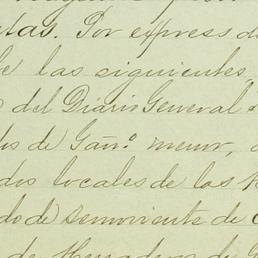 etas. Por express d
e las siguientes
del Diario General
os de Gan.o menor,
dos locales de los
do de semoviente de
de